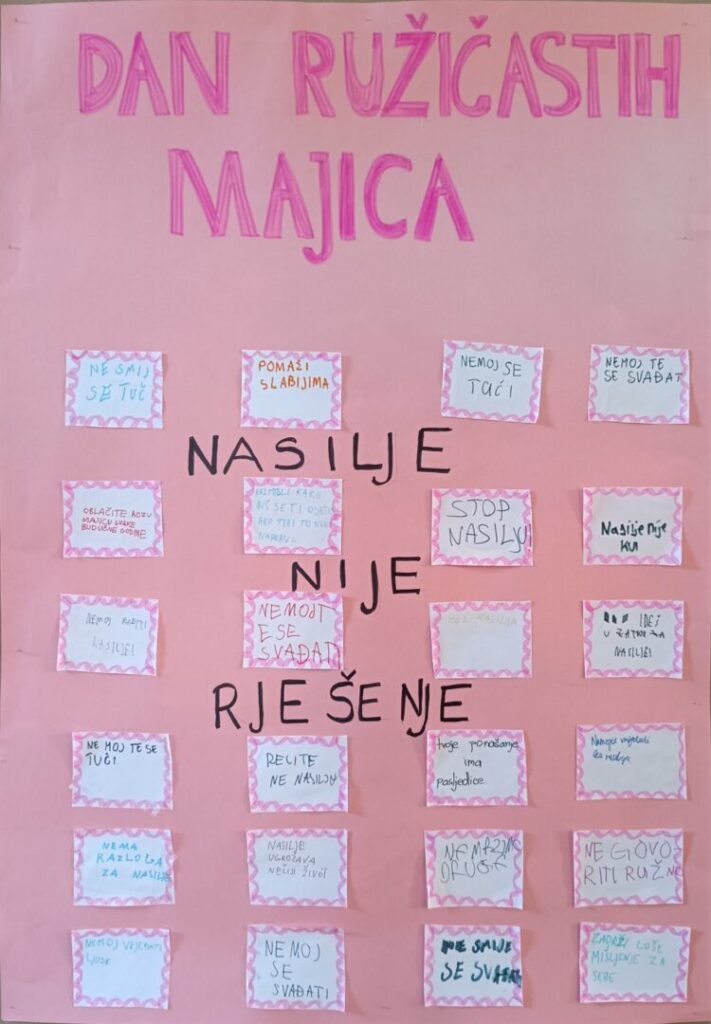 DAN RUŽIČASTIH
MAJICA
NE SMIJ
SE TUČ
POMAŽI
SLABIJIMA
NEMOJ SE
TUĆI
NEMOJ TE
SE SVAĐAT
NASILJE
OBLAČITE ROZU
MAJICU SVAKE
BUDUĆNE GODINE
KAKO
BIŠ SE TI
TEBI TO
NAPRAVIO
STOP
NASILJU
Nasilje nije
kul
NIJE
NEMOJ RADITI
NASILJE!
NEMOJT
E SE
SVAĐAT
BEZ NASILJA
IDEJ
U ZATVOR ZA
NASILJE!
RJEŠENJE
NE MOJ TE SE
TUČI
RECITE
NE NASILJU
tvoje ponašanje
ima
posljedice
NEMA
RAZLOGA
ZA NASILJE
NASILJE
UGROŽAVA
NEČIJI ŽIVOT
NE GOVO
RITI RUŽNE
NEMOJ VRJEĐATI
LJUDE
NEMOJ
SE
SVAĐATI
NE SMIJE
SE SVAĐAT
ZADRŽI LOŠE
MIŠLJENJE ZA
SEBE